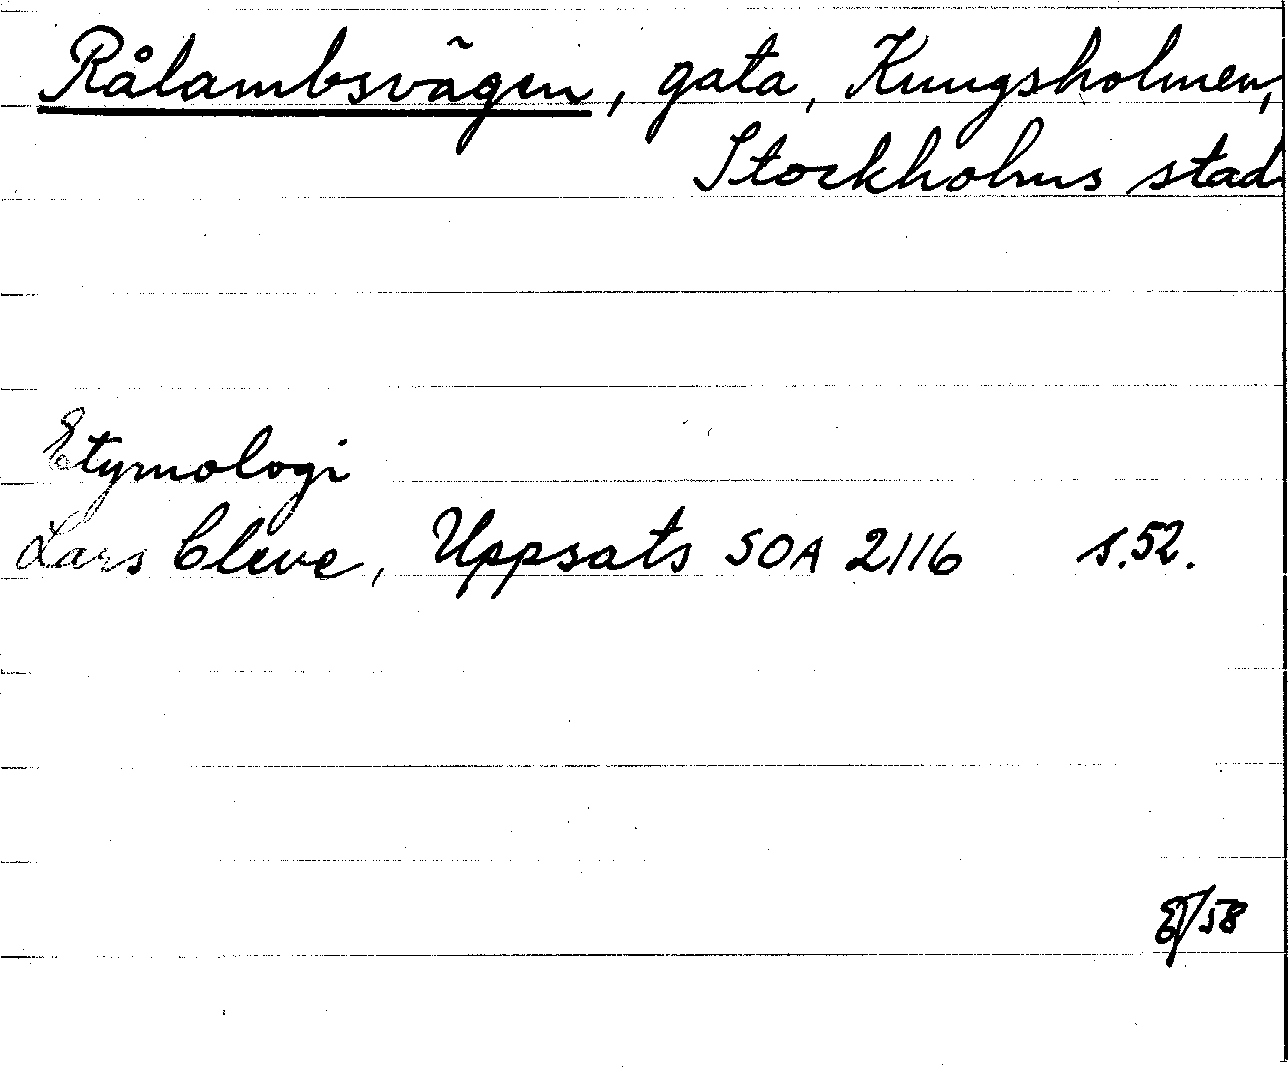 Rålambsvägen, gata, Kungsholmen,
Stockholms stad
Etymologi
Lars Cleve, Uppsats SOA 2116 s. 52.
/58